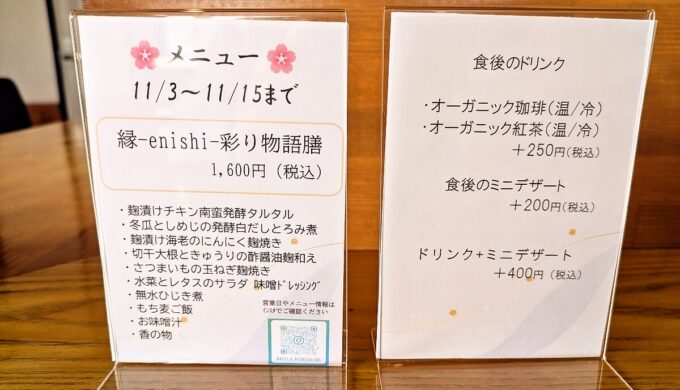 メニュー
11/3～11/15まで
縁-enishi-彩り物語膳
1,600円（税込）
・麹漬けチキン南蛮発酵タルタル
・冬瓜としめじの発酵白だしとろみ煮
・麹漬け海老のにんにく麹焼き
・切干大根ときゅうりの酢醤油麹和え
・さつまいもの玉ねぎ麹焼き
・水菜とレタスのサラダ 味噌ﾄﾞﾚｯｼﾝｸﾞ
・無水ひじき煮
・もち麦ご飯
・お味噌汁
・香の物
営業日やメニュー情報は
ｲﾝｽﾀでご確認ください
食後のドリンク
・オーガニック珈琲（温/冷）
・オーガニック紅茶（温/冷）
＋250円（税込）
食後のミニデザート
＋200円（税込）
ドリンク+ミニデザート
＋400円（税込）